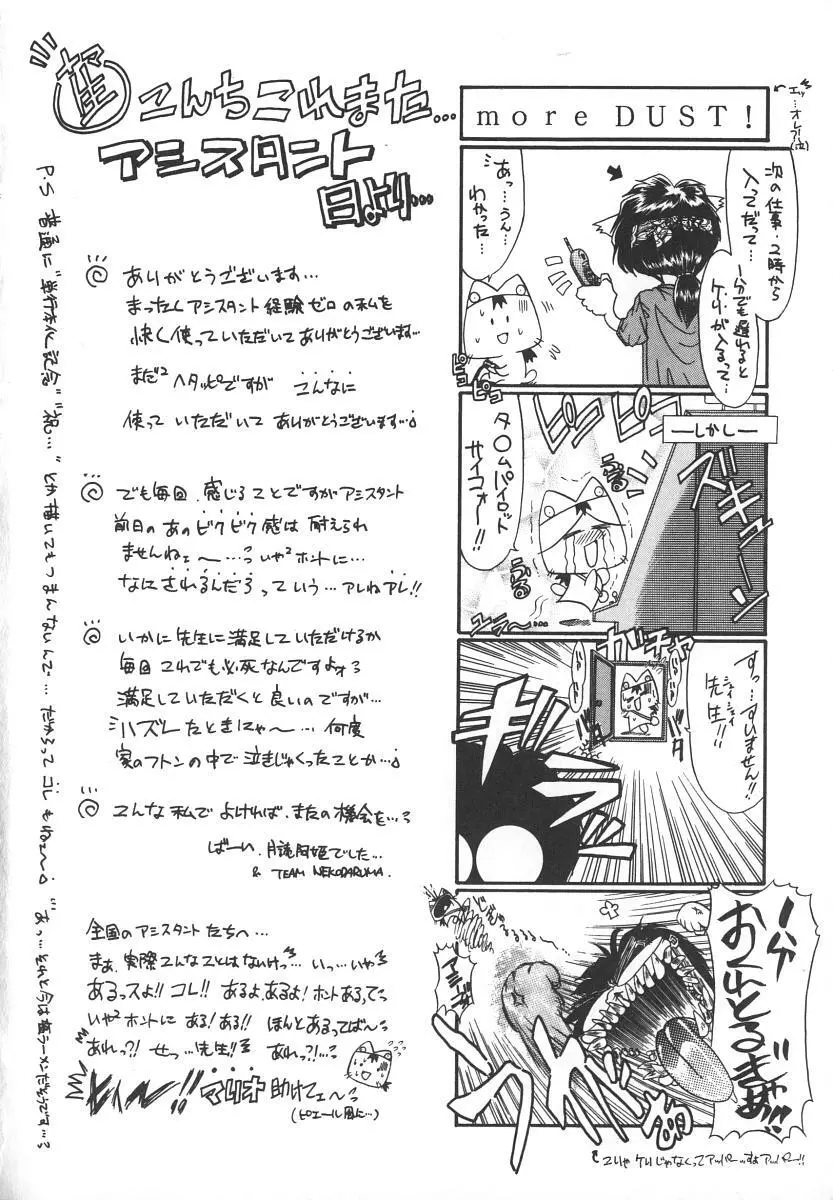 こんちこれまた…
アシスタント
日より…
more DUST!
エッ…オレ?!(泣)
次の仕事・2時から
入ってだって…
1分でも遅れると
ケリが入るって…
あっ…うん
わかった…
ピコピコ
―しかし―
ピコピコ
タ〇ムパイロット
サイコォー!!
ズギューン
ぷるぷる
ユラ〜……
ガチャ
すっ…すいません!!
先生!!
バタバタ
1分
おくれとるぎゃあ!!
アッパー
ありがとうございます…
まったくアシスタント経験ゼロの私を
快く使っていただいてありがとうございます…
まだ²ヘタッピですが こんなに
使って いただいて ありがとうございます…
でも毎回、感じることですがアシスタント
前日のあのビクビク感は耐えられ
ませんねェ〜…いや²ホントに…
なにされるんだろっていう…アレねアレ!!
いかに先生に満足していただけるか
毎回これでも必死なんですよォ
満足していただくと良いのですが…
ハズしたときにゃ〜… 何度
家のフトンの中で泣きじゃくったことか…
こんな私でよければ、またの機会を…
ばーい、
でした…
& TEAM NEKODARUMA.
全国のアシスタントたちへ…
まぁ、実際こんなことはないけっ…いっ…いや
あるっスよ!! コレ!! あるよ、あるよ! ホントあるって
いや²ホントに ある!ある!! ほんとあるってば〜
あれっ?! せっ…先生!! あれっ?!…
助けてェ〜
(ピエール風に…)
P.S 普通に"単行本化記念""祝…"とか描いてもつまんないんで… だからってコレもねェ〜